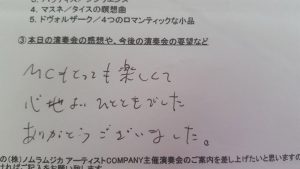 4. マスネ/タイスの瞑想曲
5. ドヴォルザーク/4つのロマンティックな小品
③本日の演奏会の感想や、今後の演奏会の要望など
MCもとっても楽しくて
心地よいひとときでした
ありがとうございました。
の(株)ノムラムジカ アーティストCOMPANY主催演奏会のご案内を差し上げたいと思いますの